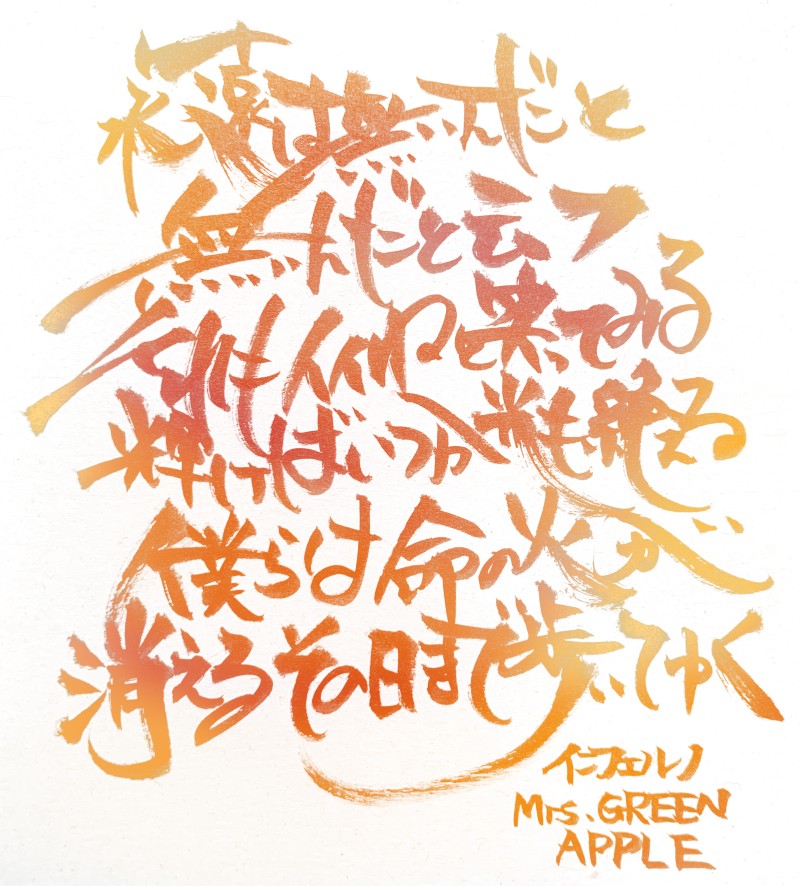 永遠は無いんだと
無いんだと云フ
それもイイねと笑ってみる
輝けばいつか光も絶える
僕らは命の火が
消えるその日まで歩いてゆく
インフェルノ
Mrs. GREEN
APPLE